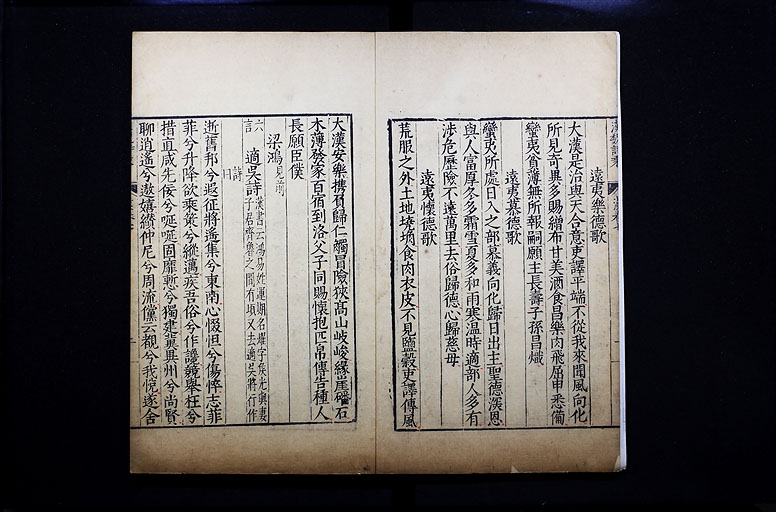 遠夷樂德歌
大漢是治與天合意吏譯平端不從我來聞風向化
所見奇異多賜繒布甘美酒食昌樂肉飛屈申悉備
蠻夷貧薄無所報嗣願主長壽子孫昌熾
遠夷慕德歌
蠻夷所處日入之部慕義向化歸日出主聖德深恩
與人富厚冬多霜雪夏多和雨寒溫時適部人多有
涉危歷險不遠萬里去俗歸德心歸慈母
遠夷懷德歌
荒服之外土地墝埆食肉衣皮不見鹽穀吏譯傳風
大漢安樂攜負歸仁觸冒險狹高山岐峻緣崖磻石
木薄發家百宿到洛父子同賜懷抱匹帛傳告種人
長願臣僕
梁鴻見前
適吳詩漢書云鴻易姓運期名燿字侯光與妻子居齊魯之間有頃又去適吳將行作詩曰
六言
逝舊邦兮遐征將遙集兮東南心惙怛兮傷悴志菲
菲兮升降欲乘策兮縱邁疾吾俗兮作讒競舉枉兮
措直咸先佞兮唌唌固靡慙兮獨建冀異州兮尚賢
聊逍遙兮遨嬉纘仲尼兮周流儻云覩兮我悅遂舍